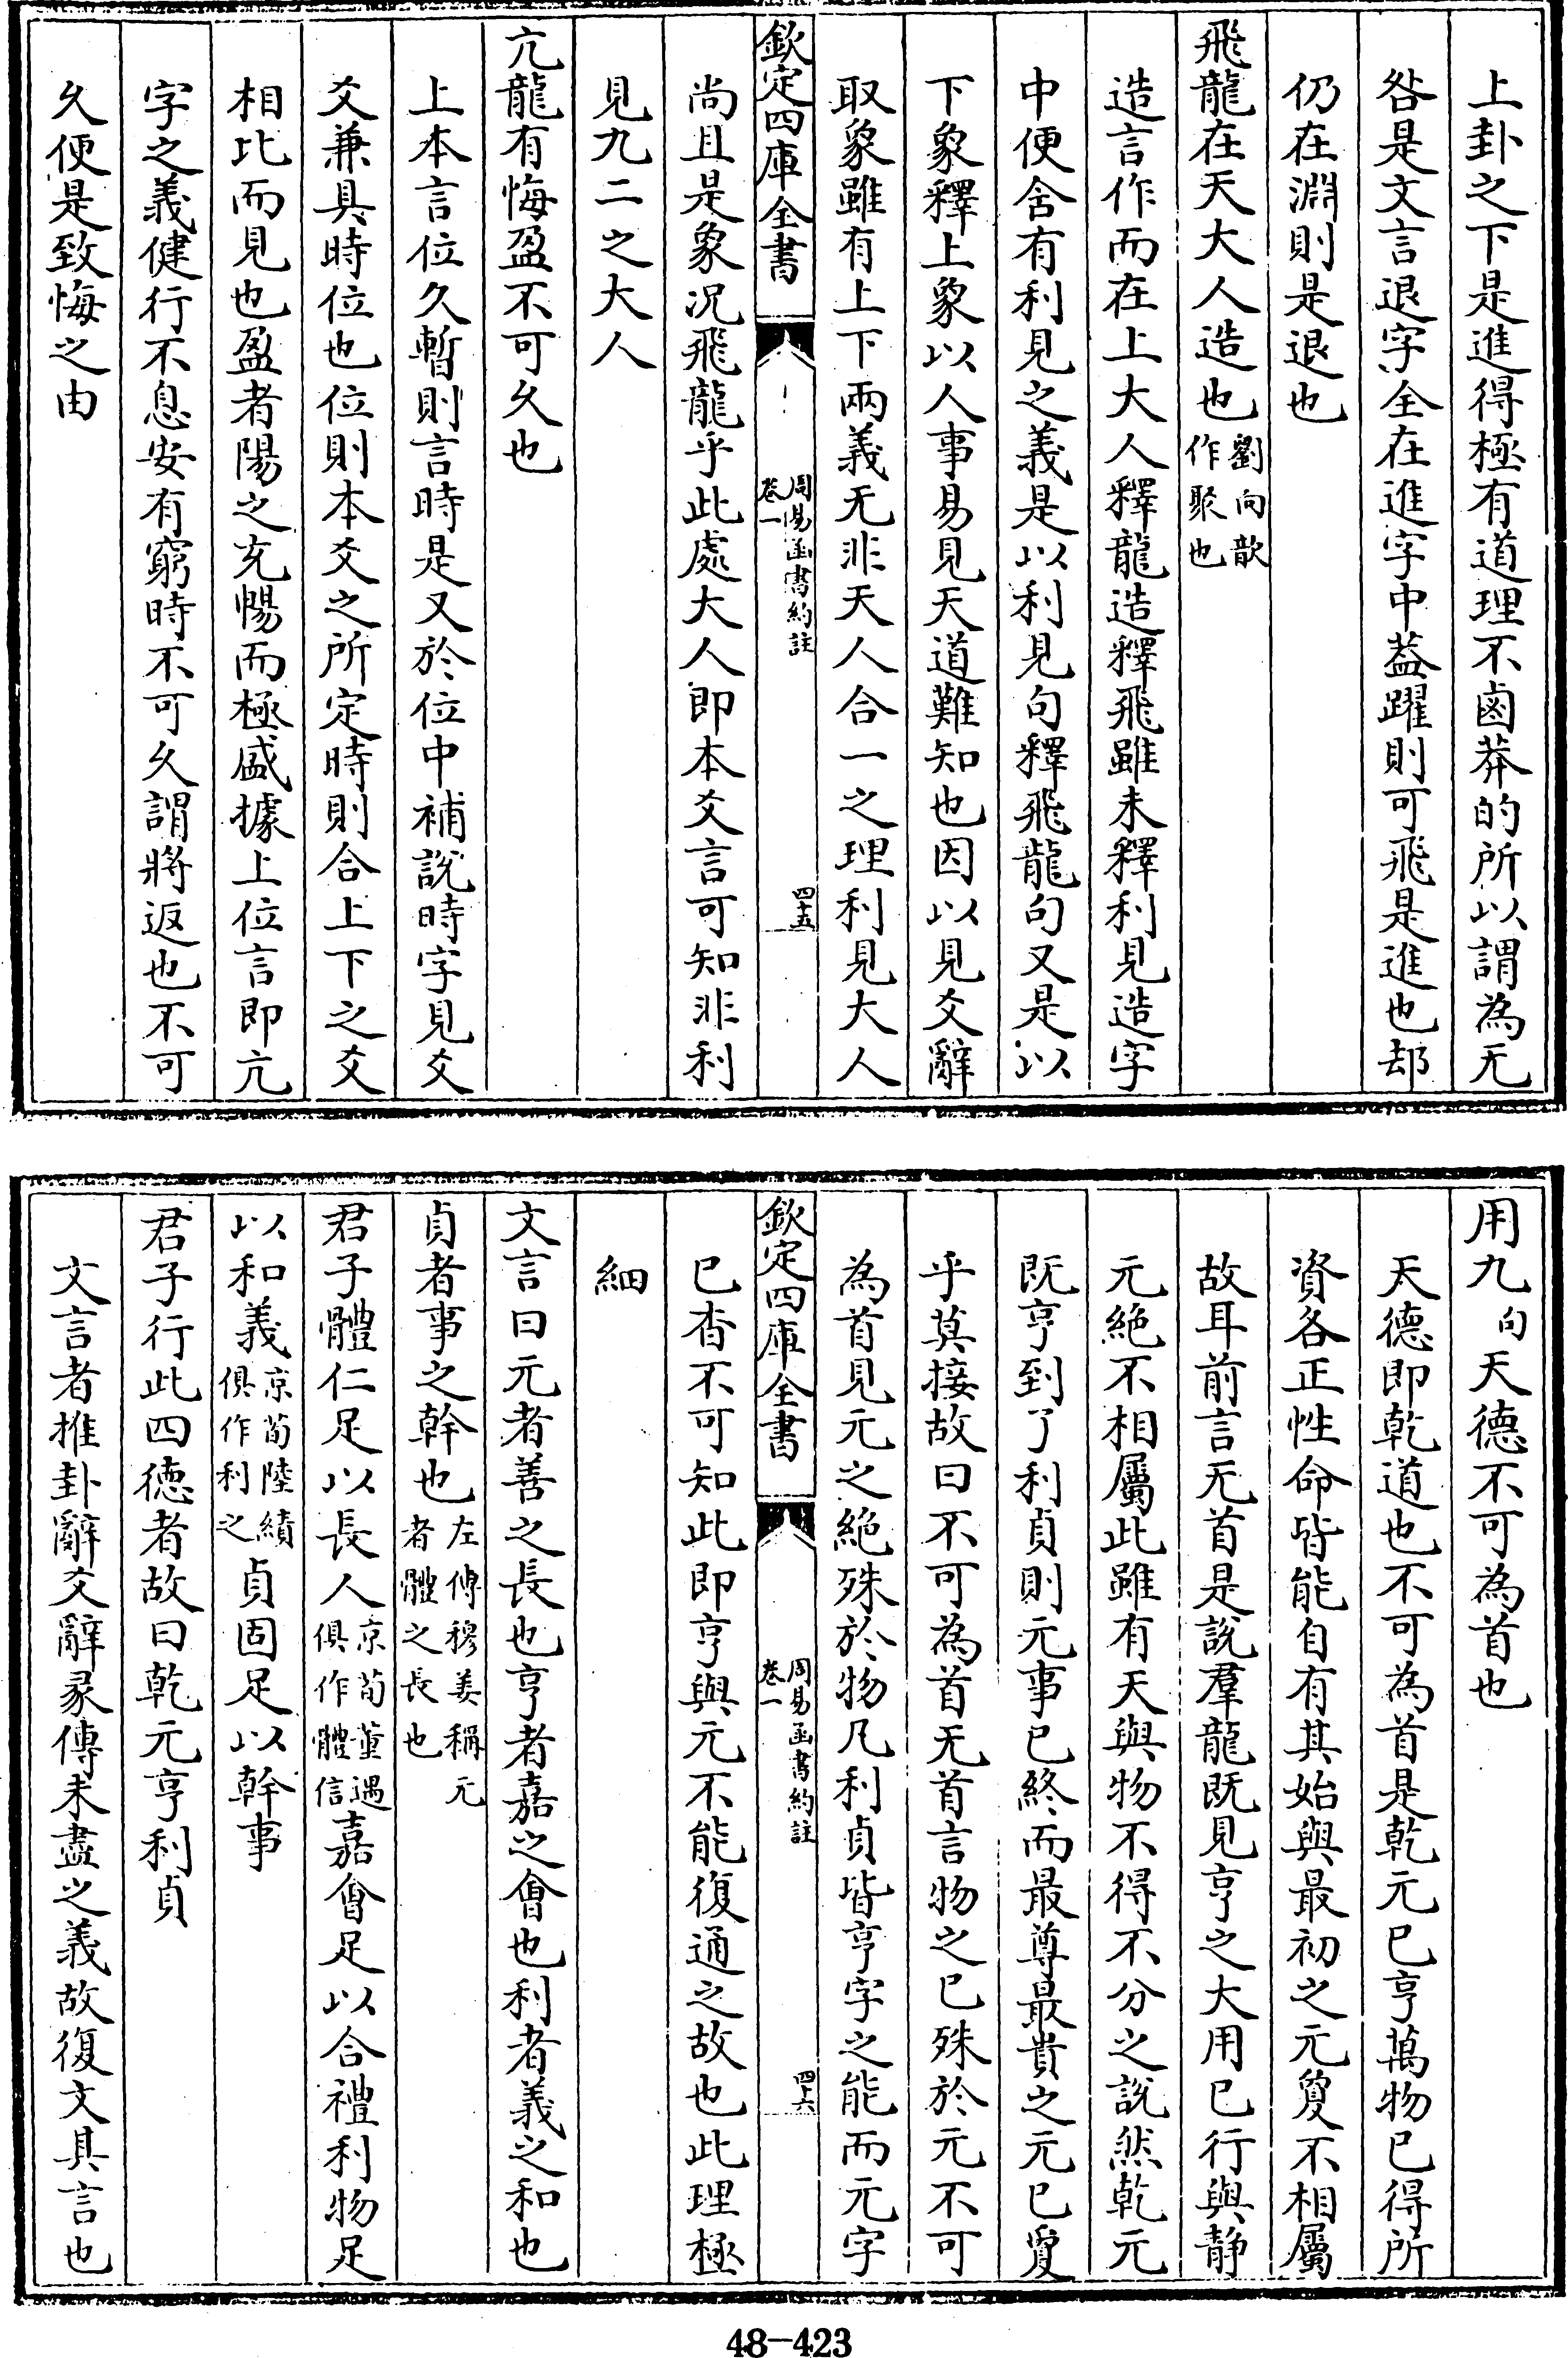 上卦之下是進得極有道理不鹵莽的所以謂為无
咎是文言退字全在進字中葢躍則可飛是進也却
仍在淵則是退也
飛龍在天大人造也劉向歆作聚也
造言作而在上大人釋龍造釋飛雖未釋利見造字
中便含有利見之義是以利見句釋飛龍句又是以
下象釋上象以人事易見天道難知也因以見爻辭
取象雖有上下兩義无非天人合一之理利見大人
欽定四庫全書 周易函書約註 卷一 四十五
尚且是象况飛龍乎此處大人即本爻言可知非利
見九二之大人
亢龍有悔盈不可久也
上本言位久暫則言時是又於位中補說時字見爻
爻兼具時位也位則本爻之所定時則合上下之爻
相比而見也盈者陽之充暢而極盛據上位言即亢
字之義健行不息安有窮時不可久謂將返也不可
久便是致悔之由
用九句天德不可為首也
天德即乾道也不可為首是乾元已亨萬物已得所
資各正性命皆能自有其始與最初之元敻不相屬
故耳前言无首是說羣龍既見亨之大用已行與靜
元絶不相屬此雖有天與物不得不分之說然乾元
既亨到了利貞則元事已終而最尊最貴之元已敻
乎莫接故曰不可為首无首言物之已殊於元不可
為首見元之絶殊於物凡利貞皆亨字之能而元字
欽定四庫全書 周易函書約註 卷一 四十六
已杳不可知此即亨與元不能復通之故也此理極
細
文言曰元者善之長也亨者嘉之會也利者義之和也
貞者事之幹也左傳穆姜稱元者體之長也
君子體仁足以長人京荀董遇俱作體信嘉會足以合禮利物足
以和義京荀陸績俱作利之貞固足以幹事
君子行此四德者故曰乾元亨利貞
文言者推卦辭爻辭彖傳未盡之義故復文具言也
48-423